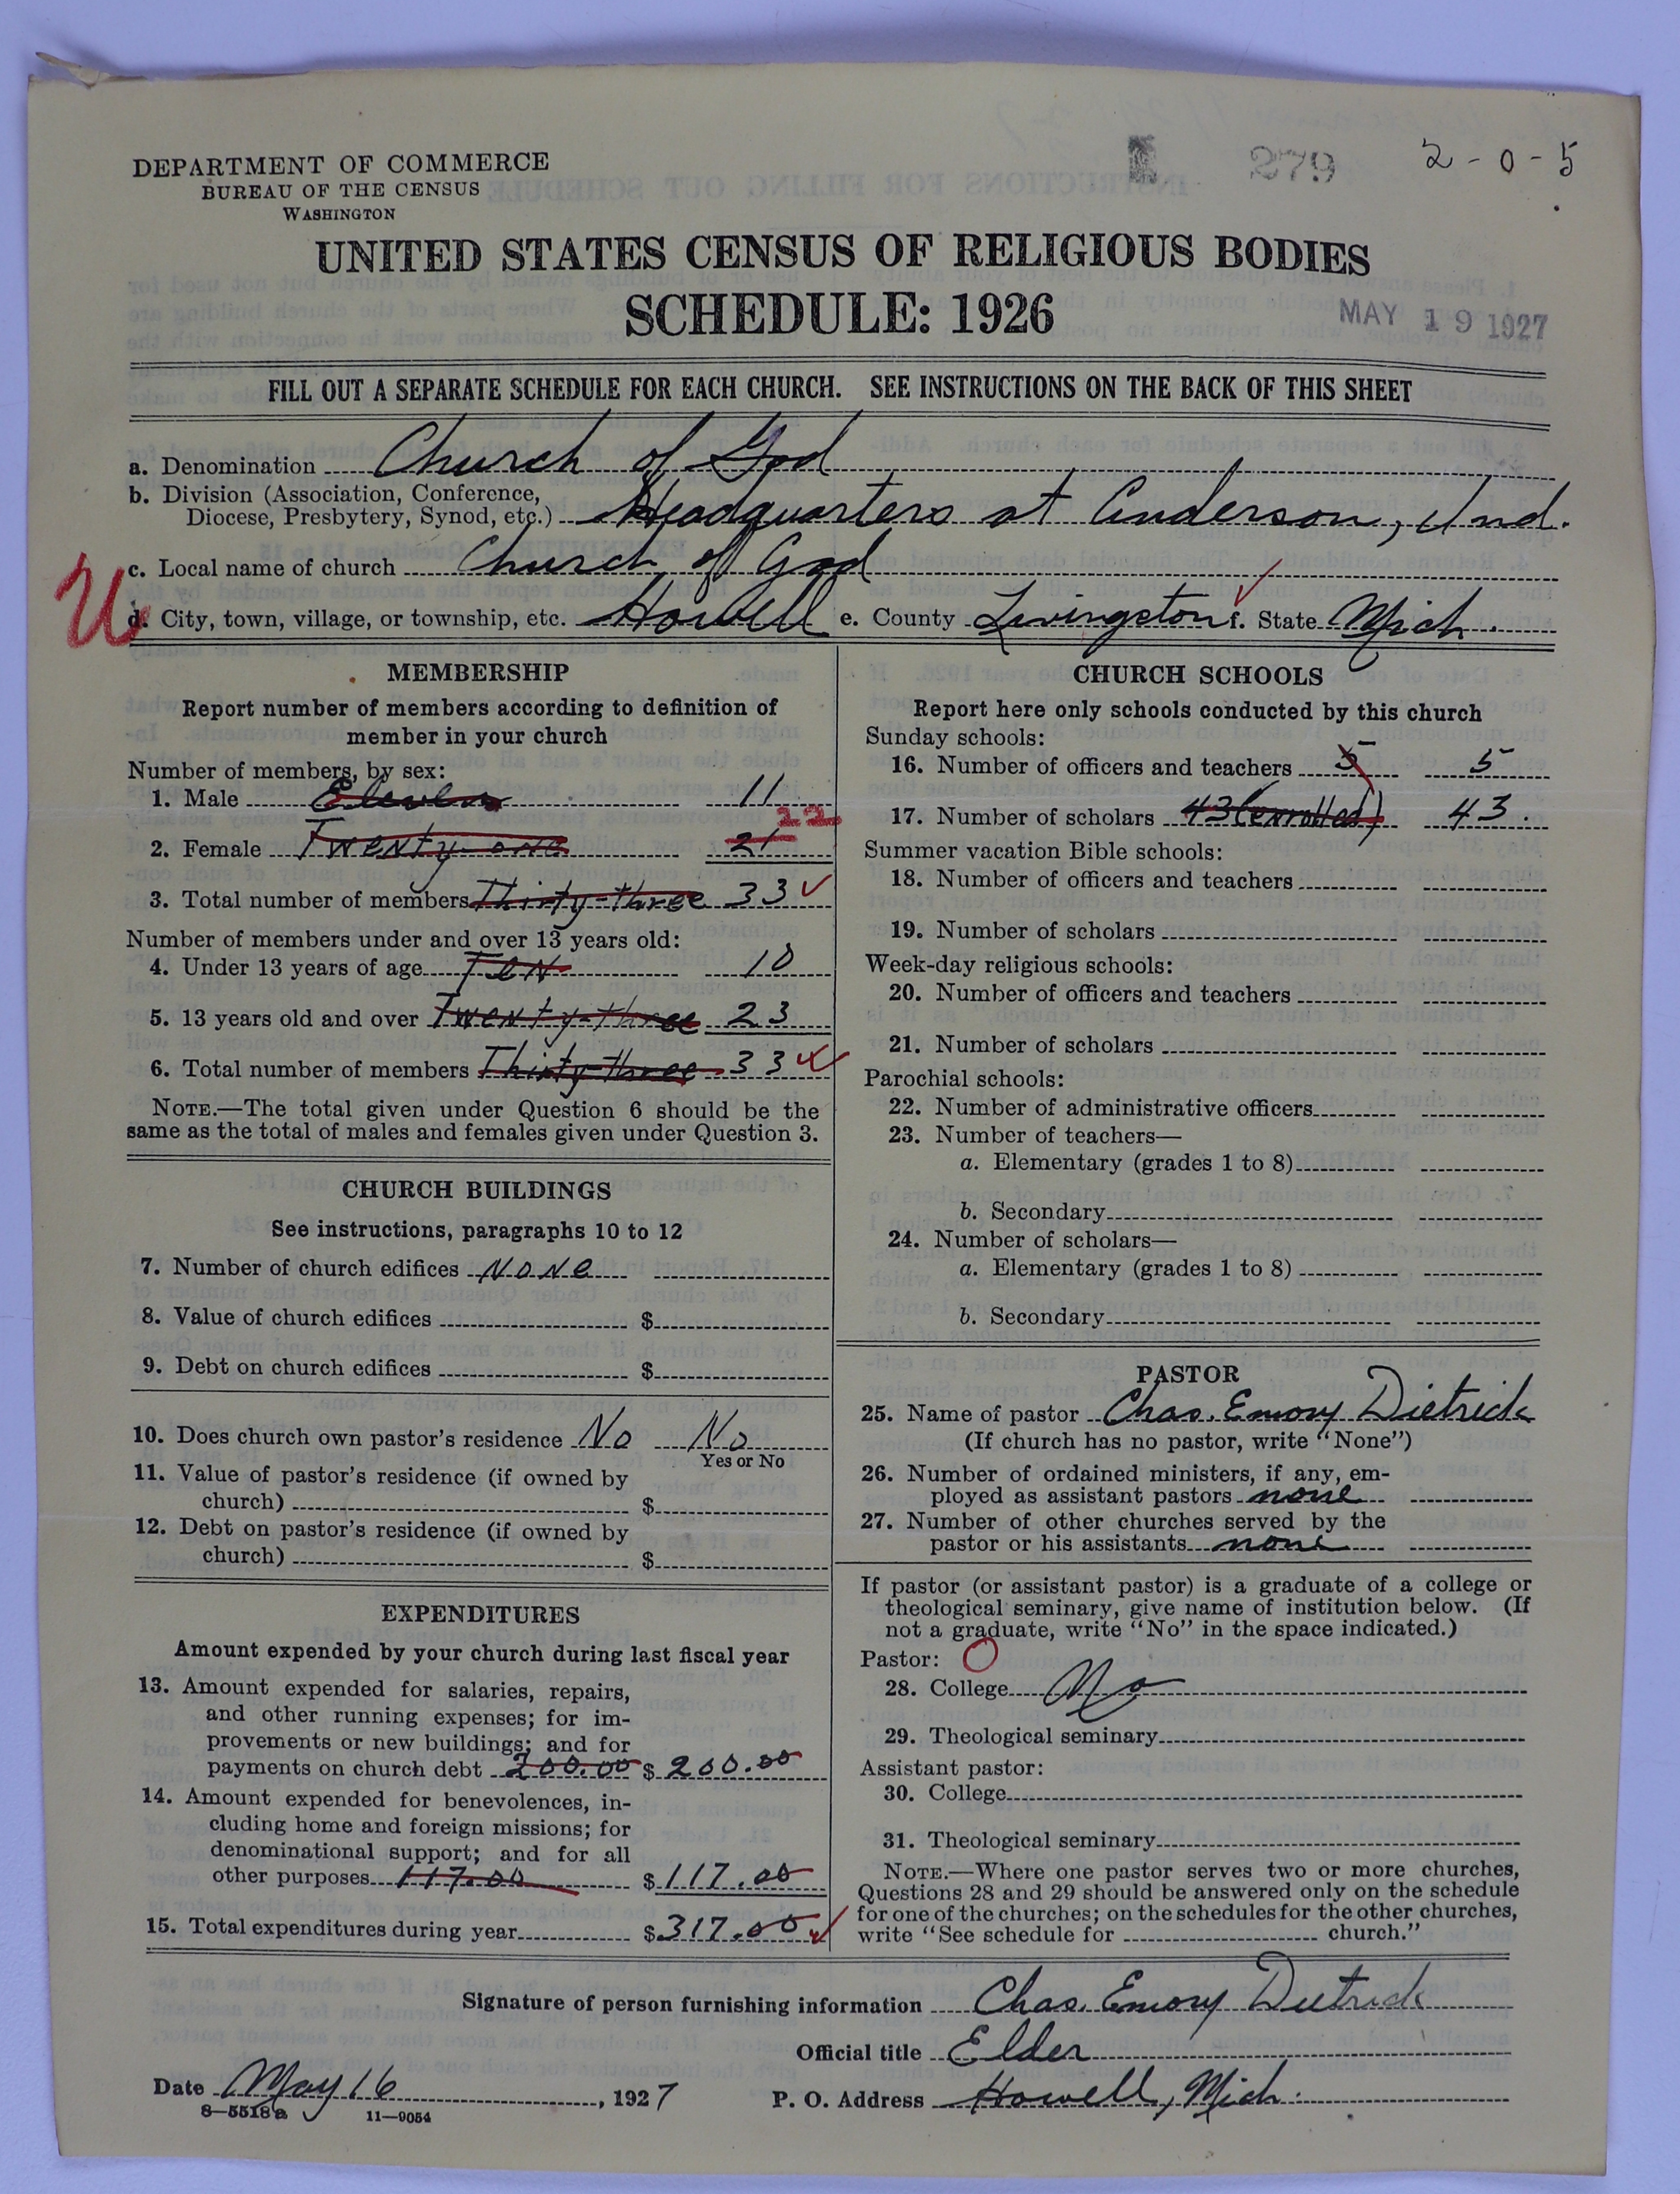 279 2-0-5
DEPARTMENT OF COMMERCE
BUREAU OF THE CENSUS
WASHINGTON
UNITED STATES CENSUS OF RELIGIOUS BODIES
SCHEDULE: 1926
MAY 19 1927
FILL OUT A SEPARATE SCHEDULE FOR EACH CHURCH. SEE INSTRUCTIONS ON THE BACK OF THIS SHEET
a. Denomination Church of God
b. Division (Association, Conference,
Diocese, Presbytery, Synod, etc.) Headquarters at Anderson, Ind.
c. Local name of church Church of God
U
d. City, town, village, or township, etc. Howell e. County Livingston f. State Mich.
MEMBERSHIP
Report number of members according to definition of
member in your church
Number of members, by sex:
1. Male Eleven 11
22
2. Female Twenty-one 21
3. Total number of members Thirty-three 33
Number of members under and over 13 years old:
4. Under 13 years of age Ten 10
5. 13 years old and over Twenty-three 23
6. Total number of members Thirty-three 33
NOTE.—The total given under Question 6 should be the
same as the total of males and females given under Question 3.
CHURCH BUILDINGS
See instructions, paragraphs 10 to 12
7. Number of church edifices None
8. Value of church edifices $
9. Debt on church edifices $
10. Does church own pastor's residence No No
Yes or No
11. Value of pastor's residence (if owned by
church) $
12. Debt on pastor's residence (if owned by
church) $
EXPENDITURES
Amount expended by your church during last fiscal year
13. Amount expended for salaries, repairs,
and other running expenses; for im-
provements or new buildings; and for
payments on church debt 200.00 $ 200.00
14. Amount expended for benevolences, in-
cluding home and foreign missions; for
denominational support; and for all
other purposes 117.00 $ 117.00
15. Total expenditures during year $ 317.00
CHURCH SCHOOLS
Report here only schools conducted by this church
Sunday schools:
16. Number of officers and teachers 5 5
17. Number of scholars 43 (enrolled) 43.
Summer vacation Bible schools:
18. Number of officers and teachers
19. Number of scholars
Week-day religious schools:
20. Number of officers and teachers
21. Number of scholars
Parochial schools:
22. Number of administrative officers
23. Number of teachers—
a. Elementary (grades 1 to 8)
b. Secondary
24. Number of scholars—
a. Elementary (grades 1 to 8)
b. Secondary
PASTOR
25. Name of pastor Chas. Emory Dietrick
(If church has no pastor, write "None")
26. Number of ordained ministers, if any, em-
ployed as assistant pastors none
27. Number of other churches served by the
pastor or his assistants none
If pastor (or assistant pastor) is a graduate of a college or
theological seminary, give name of institution below. (If
not a graduate, write "No" in the space indicated.)
Pastor: O
28. College No
29. Theological seminary
Assistant pastor:
30. College
31. Theological seminary
NOTE.—Where one pastor serves two or more churches,
Questions 28 and 29 should be answered only on the schedule
for one of the churches; on the schedules for the other churches,
write "See schedule for church."
Signature of person furnishing information Chas. Emory Dietrick
Official title Elder
Date May 16, 1927 P. O. Address Howell, Mich.
8-5518a 11-9054